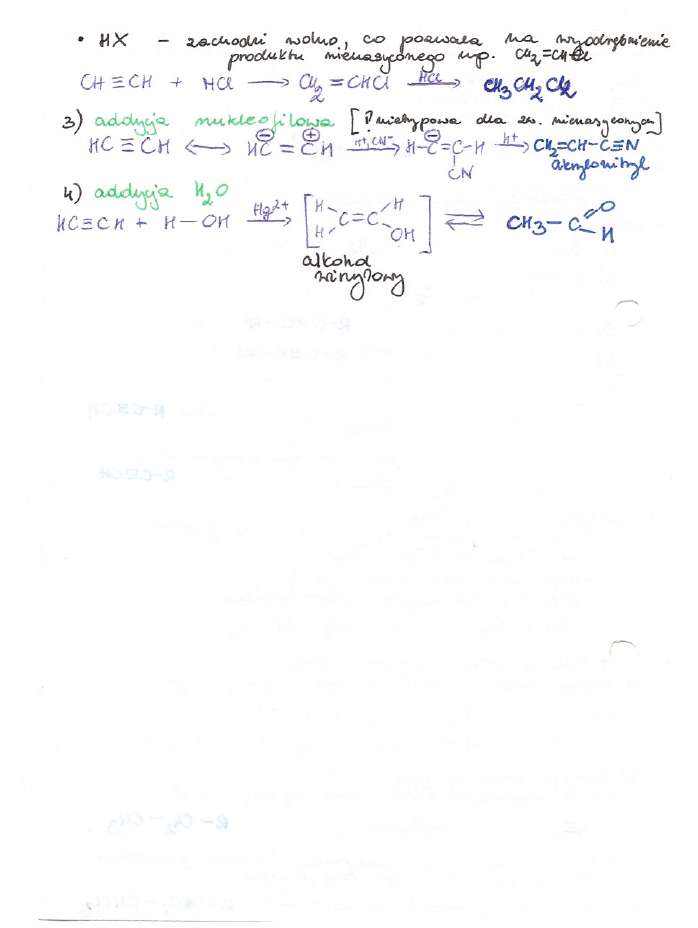 • HX – zachodzi wolno, co pozwala na wyodrębnienie
produktu nienasyconego np. CH₂=CHCl
CH≡CH + HCl ⟶ CH₂=CHCl —HCl→ CH₃CH₂Cl₂
3) addycja nukleofilowa [! nietypowa dla zw. nienasyconych]
HC≡CH ⟷ HC⊖=C⊕H —H⁺,CN⁻→ H-C⊖=C-H —h⁺→ CH₂=CH-C≡N
CN akrylonitryl
4) addycja H₂O
HC≡CH + H—OH —Hg²⁺→ [H H C=C H OH] ⇌ CH₃—C=O H
alkohol
winylowy